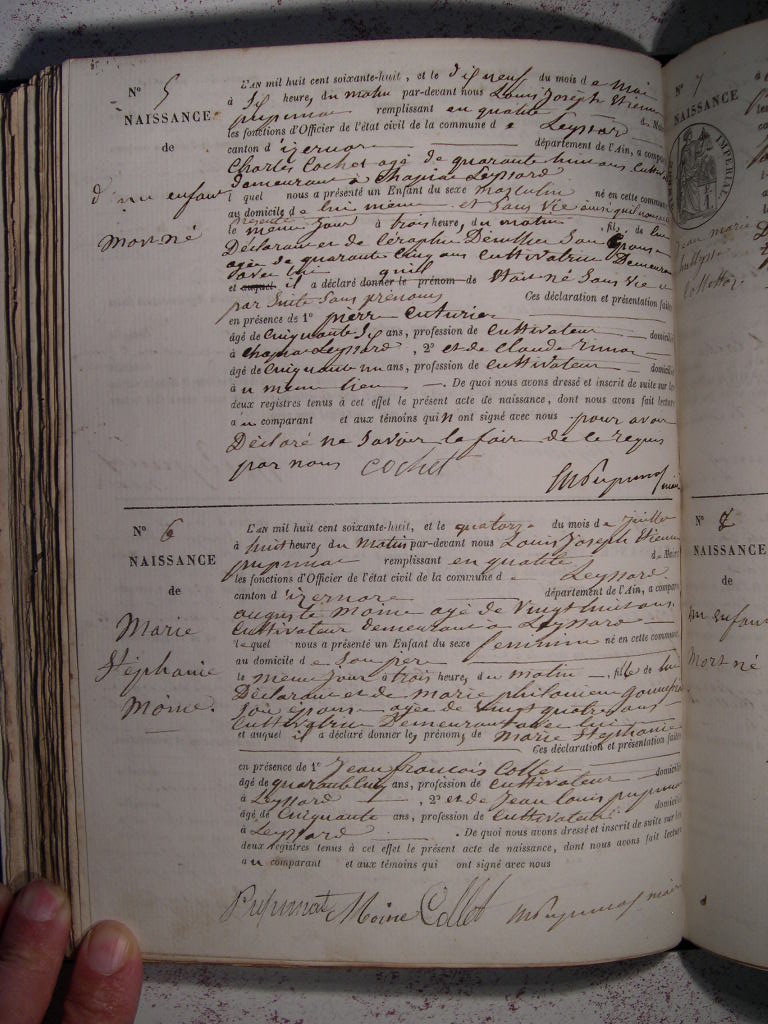 N° 5
NAISSANCE
de
d'un enfant
Mort né
L'AN mil huit cent soixante-huit, et le dix neuf du mois de Mai
à Six heures du matin par-devant nous Louis Joseph Vienne
remplissant en qualité de Maire
les fonctions d'Officier de l'état civil de la commune de Leyssard
canton d'izernore département de l'Ain, a comparu
Charles Cochet agé de quarante huit ans Cultiv
demeurant à Chapiaz Leyssard
lequel nous a présenté un Enfant du sexe masculin né en cette commune
au domicile de lui meme et Sans Vie ainsi qu'il nous a été
présenté
le meme jour à trois heures du matin, fils de lui
Déclarant et de Séraphie son Epouse
agée de quarante Cinq ans Cultivatrice Demeurant
avec lui qu'il
et auquel il a déclaré donner le prénom de Mort né Sans Vie et
par Suite Sans prénoms Ces déclaration et présentation faites
en présence de 1° pierre
âgé de Cinquante Six ans, profession de Cultivateur domicilié
à Chapiaz Leyssard, 2° et de Claude
âgé de Cinquante un ans, profession de Cultivateur domicilié
à u meme lieu. De quoi nous avons dressé et inscrit de suite sur les
deux registres tenus à cet effet le présent acte de naissance, dont nous avons fait lecture
au comparant et aux témoins qui n'ont signé avec nous pour avoir
Déclaré ne Savoir le faire de ce requis
par nous Cochet
N° 6
NAISSANCE
de
Marie
Stéphanie
Moine.
L'AN mil huit cent soixante-huit, et le quatorze du mois de Juillet
à huit heures du Matin par-devant nous Louis Joseph Vienne
remplissant en qualité de Maire
les fonctions d'Officier de l'état civil de la commune de Leyssard.
canton d'izernore département de l'Ain, a comparu
auguste Moine agé de Vingt huit ans
Cultivateur demeurant à Leyssard
lequel nous a présenté un Enfant du sexe feminin né en cette commune
au domicile de Son per
le meme jour à trois heures du matin, fille de lui
Déclarant et de marie philomene
Son épouse agée de vingt quatre ans
Cultivatrice Demeurant avec lui
et auquel il a déclaré donner les prénoms de Marie Stéphanie
Ces déclaration et présentation faites
en présence de 1° Jean francois Collet
âgé de quarante Cinq ans, profession de Cultivateur domicilié
à Leyssard, 2° et de Jean louis
âgé de Cinquante ans, profession de Cultivateur domicilié
à Leyssard. De quoi nous avons dressé et inscrit de suite sur les
deux registres tenus à cet effet le présent acte de naissance, dont nous avons fait lecture
au comparant et aux témoins qui ont signé avec nous
Moine Collet
N° 7
NAISSANCE
IMPÉRIAL
Jean marie
N° 8
NAISSANCE
de
un enfant
Mort né